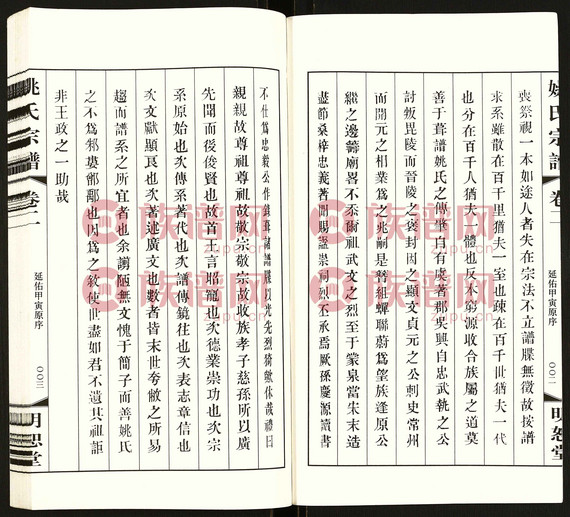 姚氏宗譜
卷二
延佑甲寅原序
〇〇二
明恕堂
喪祭視一本如途人者失在宗法不立譜牒無徵故按譜
求系離散在百千里猶夫一室也疎在百千世猶夫一代
也分在百千人猶夫一體也反本窮源收合族屬之道莫
善于葺譜姚氏之傳肇自有虞著郡吳興自忠武執之公
討叛毘陵而晉陵之褒封因之顯文貞元之公刺史常州
而開元之相業爲之兆嗣是簪組蟬聯蔚爲望族逢原公
繼之邊籌廟畧不忝爾祖武文之烈至于蒙泉當宋末造
盡節桑梓忠義著聞賜謚崇祠烈丕承焉厥孫慶源讀書
不仕爲忠毅公作譜以光先烈猗歟休哉禮曰
親親故尊祖尊祖故敬宗敬宗故收族孝子慈孫所以廣
先聞而後俊賢也故首王言昭寵也次德業崇功也次宗
系原始也次傳系著代也次譜傳鏡往也次表志章信也
次文獻顯良也次著述廣文也數者皆末世夸敝之所易
趨而譜系之所宜者也余謭陋無文愧于簡子而善姚氏
之不爲邾婁鄫鄅也因爲之敘使世盡如君不遺其祖詎
非王政之一助哉
姚氏宗譜
卷二
延佑甲寅原序
〇〇三
明恕堂
族谱网
zupu.cn
族谱网
zupu.cn
族谱网
zupu.cn
族谱网
zupu.cn